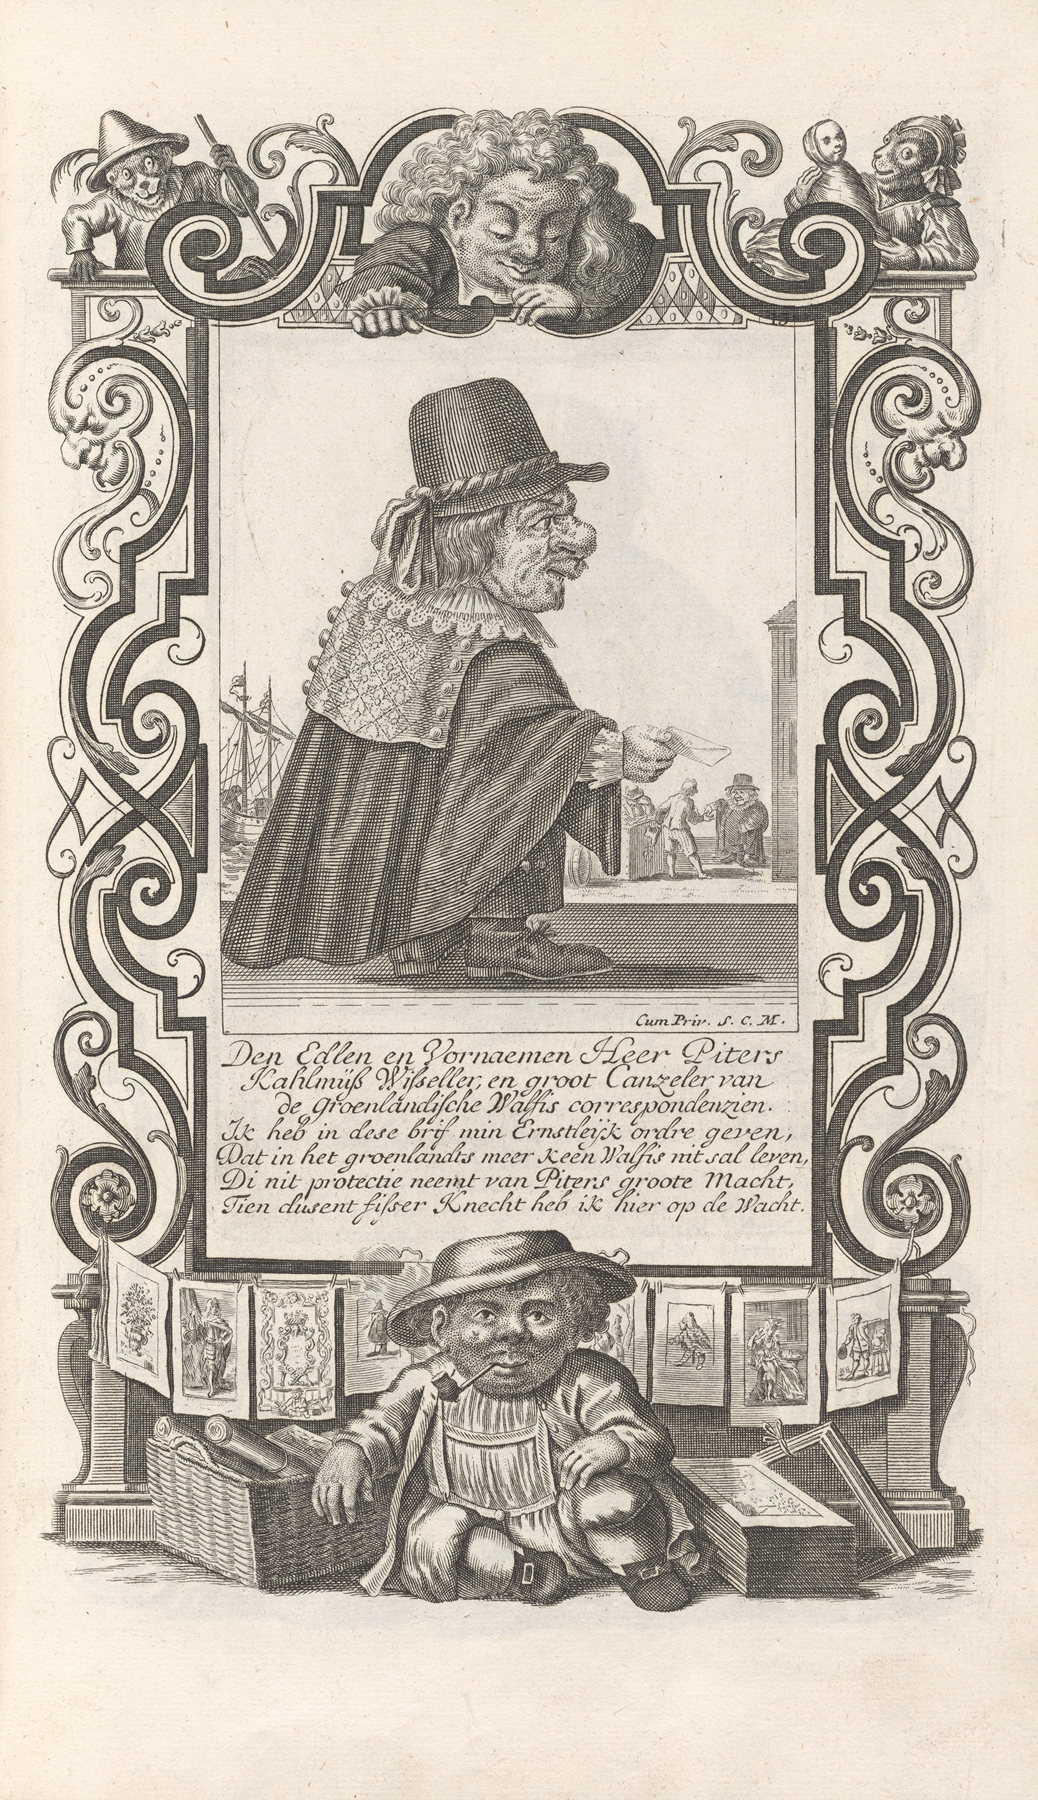 19
Cum Priv. S. C. M.
Den Edlen en Vornaemen Heer Piters
Kahlmüß Wisseller, en groot Canzeler van
de groenländische Walfis correspondenzien.
Ik heb in dese brif min Ernstleijk ordre geven,
Dat in het groenlandts meer keen Walfis nit sal leven,
Di nit protectie neemt van Piters groote Macht,
Tien dusent fisser Knecht heb ik hier op de Wacht.